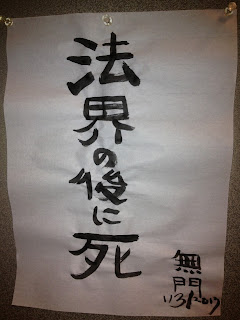 法界の後に死
無門
1/3/2017